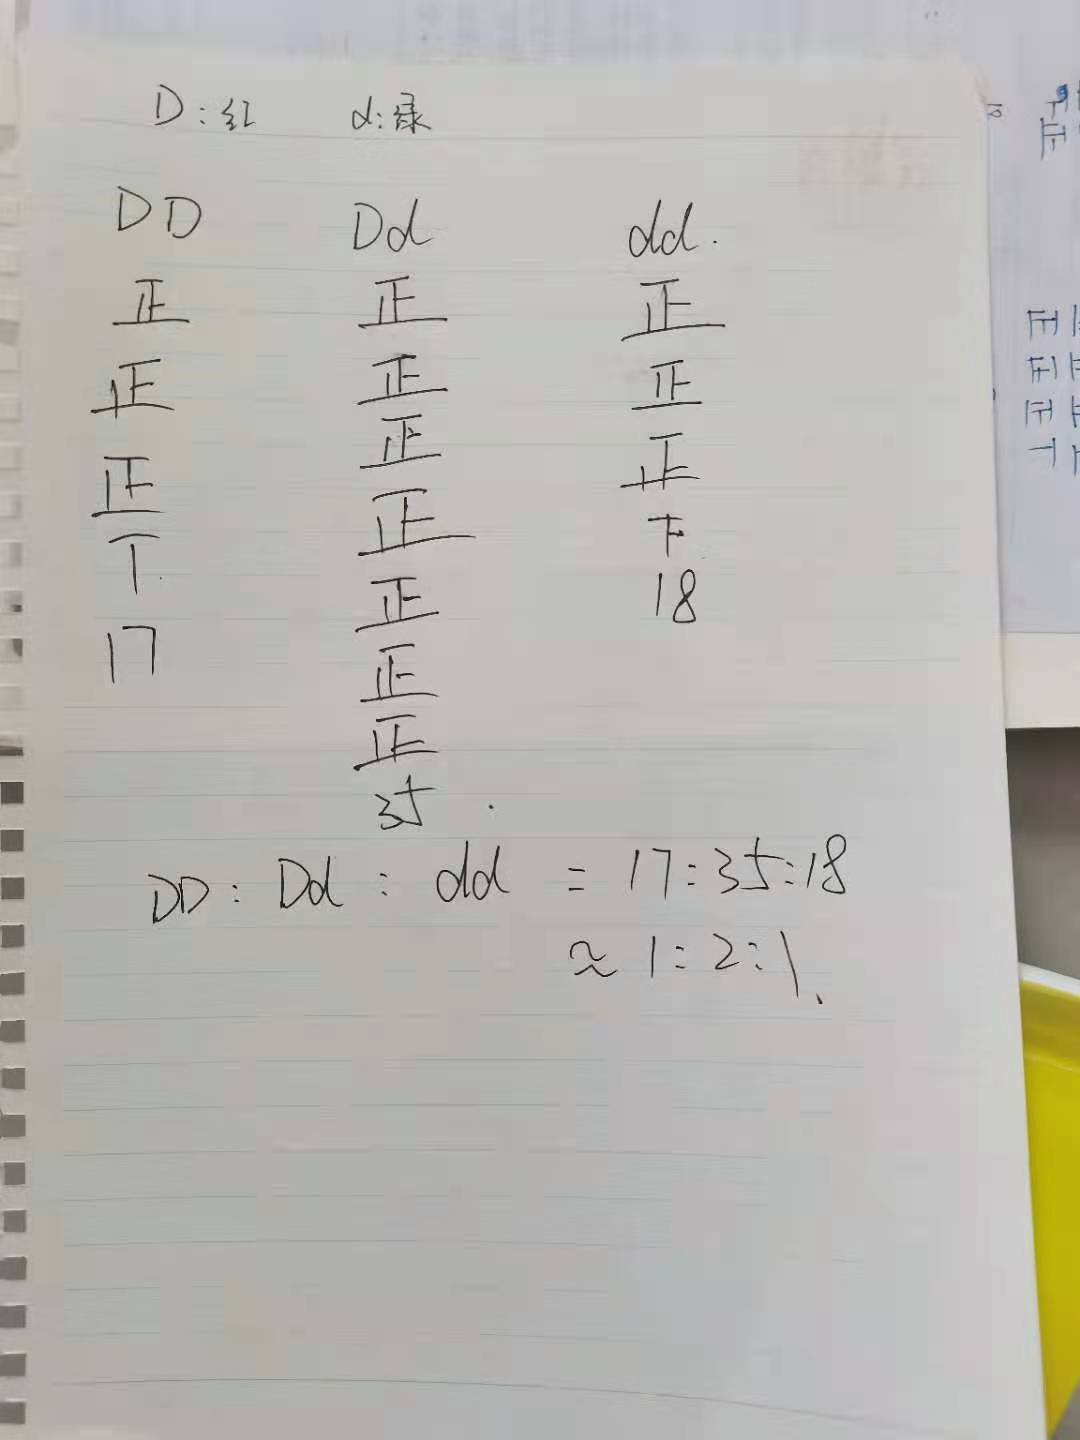 D:红 d:绿
DD Dd dd.
正 正 正
正 正 正
正 正 正
丅 正 下
17 正 18
正
正
35
DD:Dd:dd = 17:35:18
≈ 1:2:1.
正
正
正
正